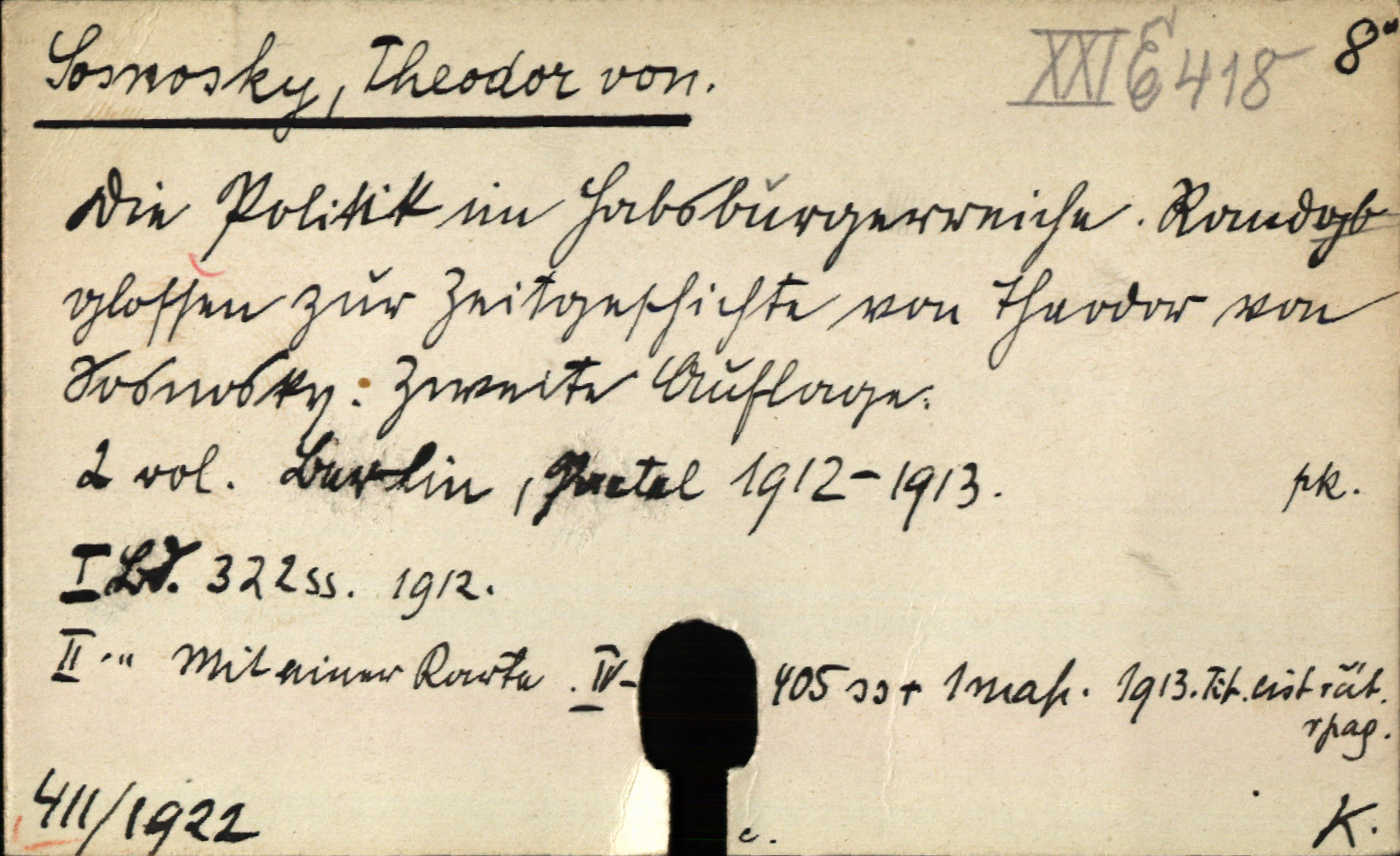 Sosnosky, Theodor von.
XXI E 418
8°
Die Politik im Habsburgerreiche. Rand=
glossen zur Zeitgeschichte von Theodor von
Sosnosky: Zweite Auflage.
2 vol. Berlin, Paetel 1912-1913.
pk.
I Bd. 322 ss. 1912.
II " Mit einer Karte. IV- 405 ss + 1 map. 1913. Tit.
rpag.
411/1922
c.
K.